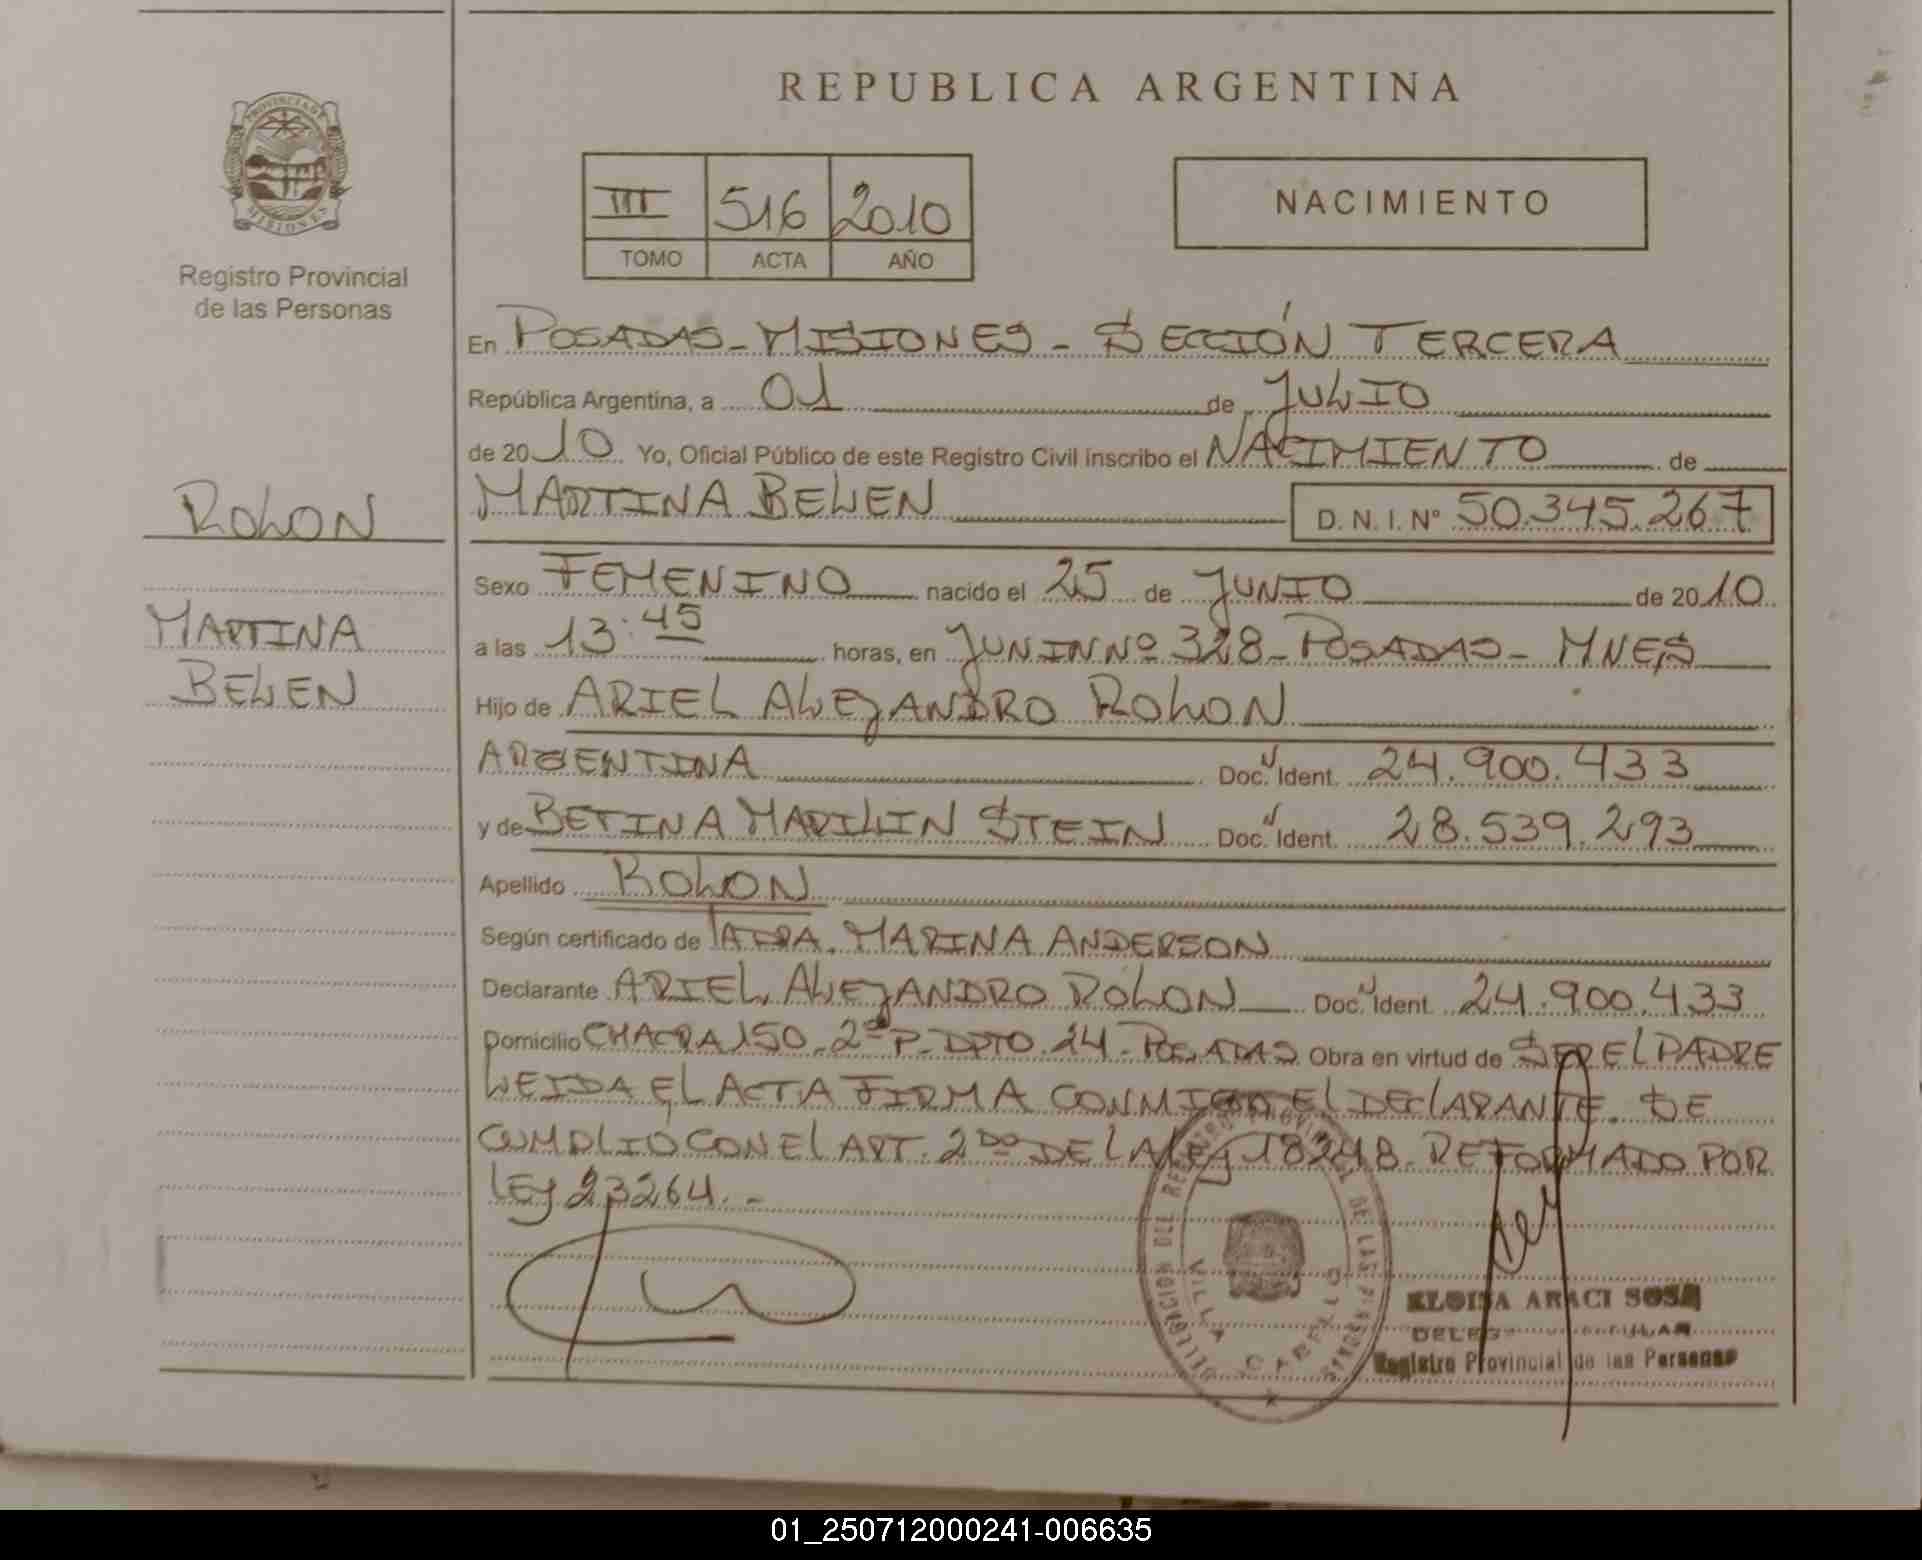 REPUBLICA ARGENTINA
PROVINCIA DE MISIONES
Registro Provincial
de las Personas
III 516 2010
TOMO ACTA AÑO
NACIMIENTO
En POSADAS-MISIONES - SECCIÓN TERCERA
República Argentina, a 01 de JULIO
de 2010 Yo, Oficial Público de este Registro Civil inscribo el NACIMIENTO de
MARTINA BELEN D. N. I. Nº 50.345.267
ROLON
MARTINA
BELEN
Sexo FEMENINO nacido el 25 de JUNIO de 2010
a las 13:45 horas, en JUNIN Nº 328-POSADAS-MNES
Hijo de ARIEL ALEJANDRO ROLON
ARGENTINA Doc. Ident. 24.900.433
y de BETINA MARILIN STEIN Doc. Ident. 28.539.293
Apellido ROLON
Según certificado de MARINA ANDERSON
Declarante ARIEL ALEJANDRO ROLON Doc. Ident. 24.900.433
Domicilio CHACRA 150-2º P-DPTO.24-POSADAS Obra en virtud de SER EL PADRE
LEIDA EL ACTA FIRMA CONMIGO EL DECLARANTE. SE
CUMPLIÓ CON EL ART. 2DO DE LA LEY 18248. REFORMADO POR
LEY 23264.-
DELEGACION DEL REGISTRO PROVINCIAL DE LAS PERSONAS
VILLA CABELLO
ELOISA ARACI SOSA
Registro Provincial de las Personas
01_250712000241-006635